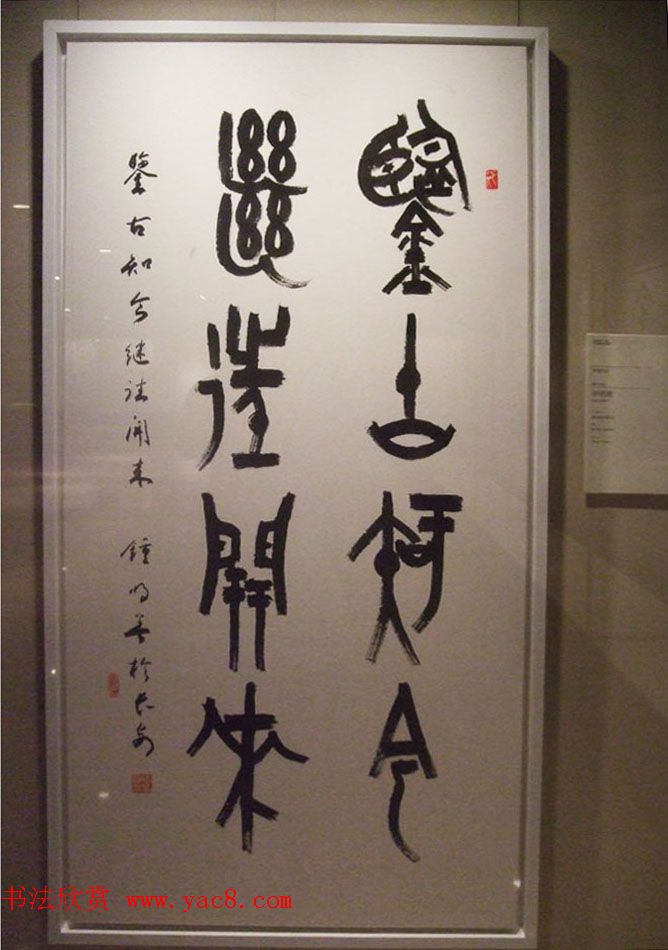 鑒古知今
繼往開來
鑒古知今继往開来 鍾明善於長安
书法欣赏 www.yac8.com